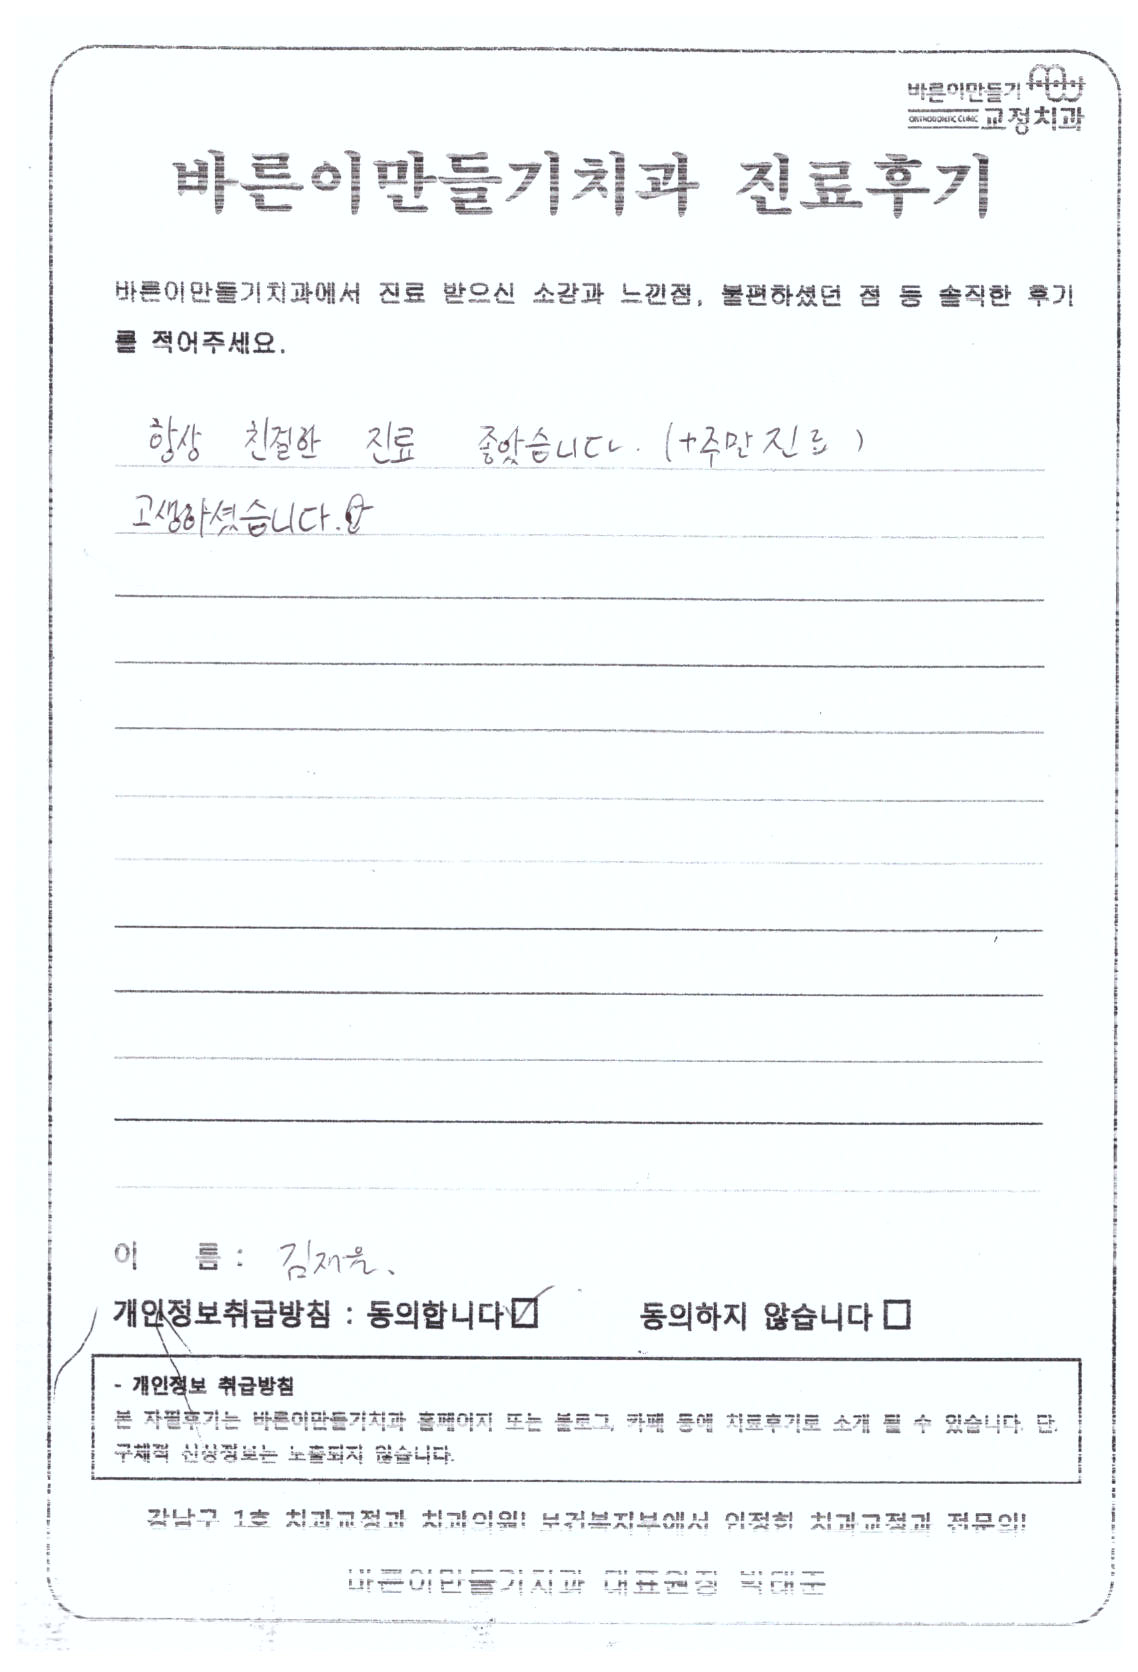 바른이만들기
ORTHODONTIC CLINIC 교정치과
바른이만들기치과 진료후기
바른이만들기치과에서 진료 받으신 소감과 느낀점, 불편하셨던 점 등 솔직한 후기
를 적어주세요.
항상 친절한 진료 좋았습니다. (+주만 진료)
고생하셨습니다.
이 름 : 김재윤.
개인정보취급방침 : 동의합니다 동의하지 않습니다
- 개인정보 취급방침
본 자필후기는 바른이만들기치과 홈페이지 또는 블로그, 카페 등에 치료후기로 소개 될 수 있습니다. 단,
구체적 신상정보는 노출되지 않습니다.
강남구 1호 치과교정과 치과의원! 보건복지부에서 인정한 치과교정과 전문의!
바른이만들기치과 대표원장 박태준